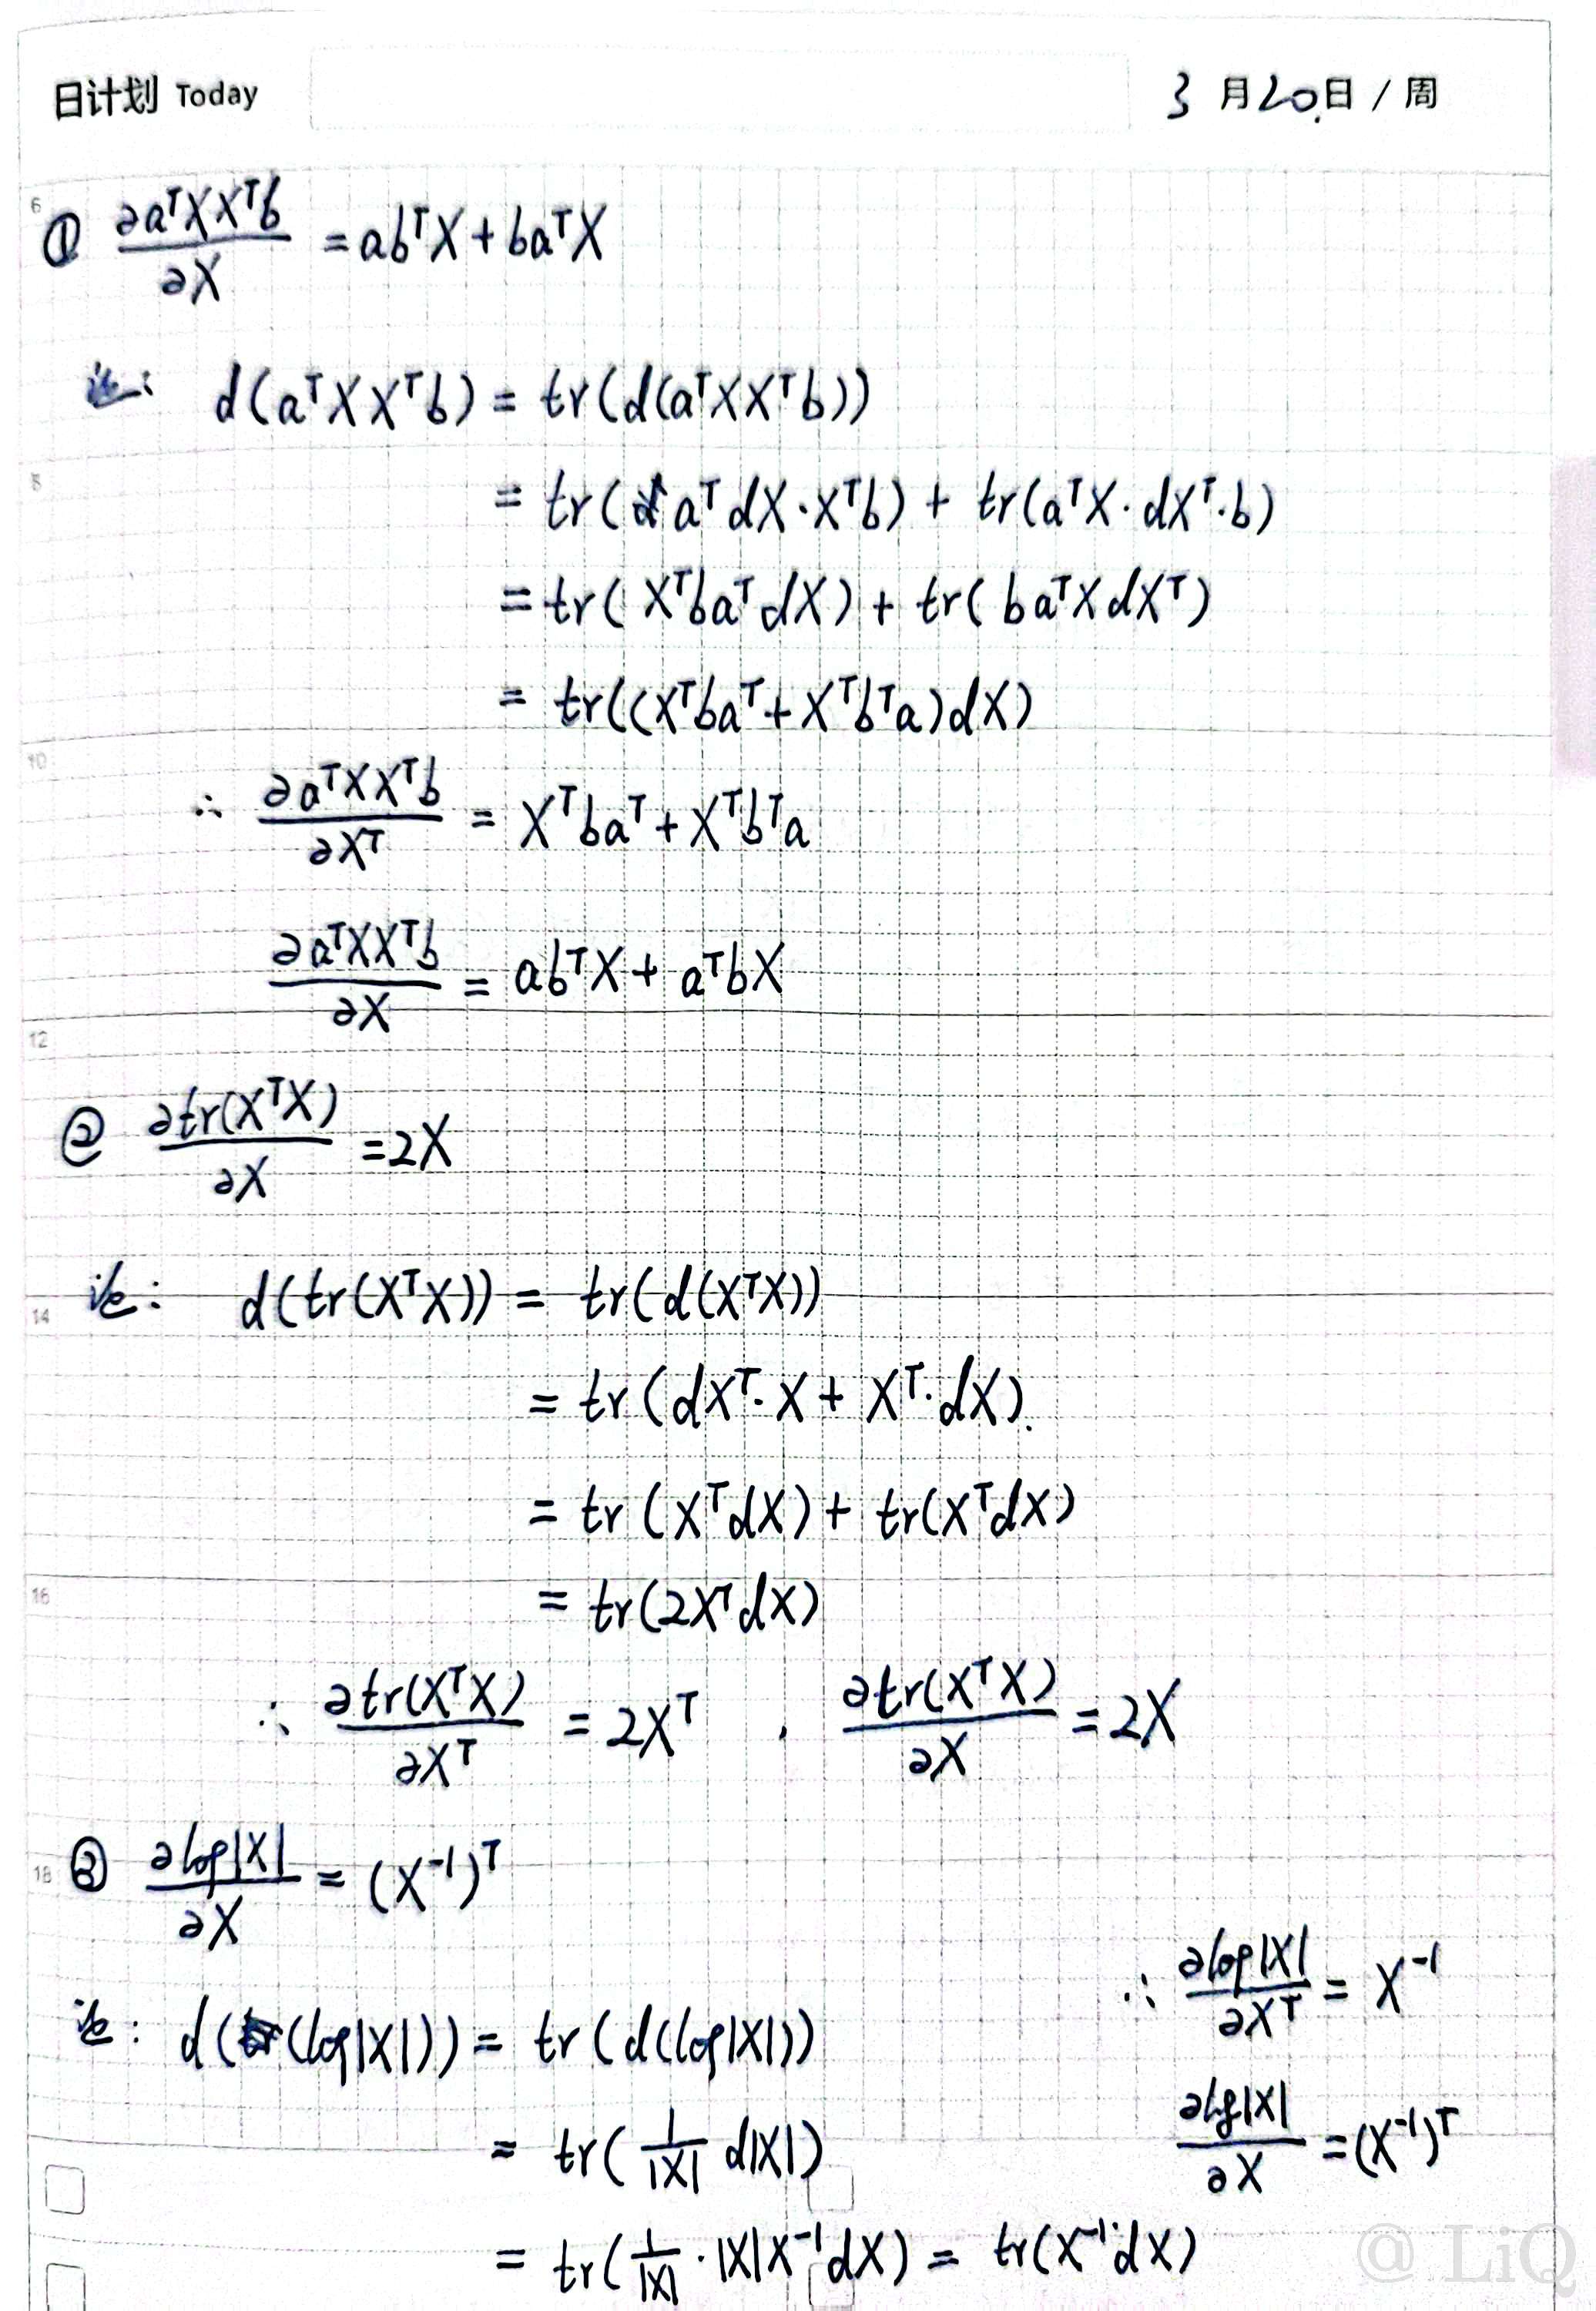 日计划 Today 3月20日 / 周
6
① ∂aᵀXXᵀb/∂X = abᵀX + baᵀX
证: d(aᵀXXᵀb) = tr(d(aᵀXXᵀb))
8
= tr(aᵀdX·Xᵀb) + tr(aᵀX·dXᵀ·b)
= tr(XᵀbaᵀdX) + tr(baᵀXdXᵀ)
= tr((Xᵀbaᵀ + Xᵀbᵀa)dX)
10
∴ ∂aᵀXXᵀb/∂Xᵀ = Xᵀbaᵀ + Xᵀbᵀa
∂aᵀXXᵀb/∂X = abᵀX + aᵀbX
12
② ∂tr(XᵀX)/∂X = 2X
证: d(tr(XᵀX)) = tr(d(XᵀX))
14
= tr(dXᵀ·X + Xᵀ·dX).
= tr(XᵀdX) + tr(XᵀdX)
16
= tr(2XᵀdX)
∴ ∂tr(XᵀX)/∂Xᵀ = 2Xᵀ , ∂tr(XᵀX)/∂X = 2X
18
③ ∂log|X|/∂X = (X⁻¹)ᵀ
证: d((log|X|)) = tr(d(log|X|))
= tr(1/|X| d|X|)
= tr(1/|X| · |X|X⁻¹dX) = tr(X⁻¹dX)
∴ ∂log|X|/∂Xᵀ = X⁻¹
∂log|X|/∂X = (X⁻¹)ᵀ
@ LiQ